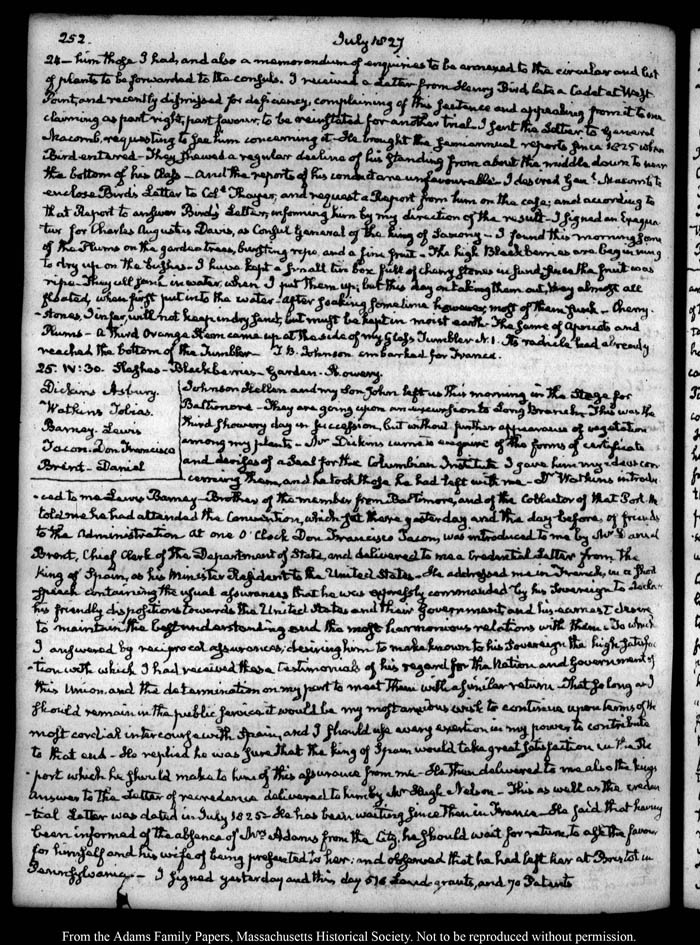 252.
July 1827
24— him those I had, and also a memorandum of enquiries to be annexed to the circular and list
of plants to be forwarded to the consuls. I received a Letter from Henry Bird, late a Cadet at West
Point, and recently dismissed for deficiency, complaining of this sentence and appealing from it to me
claiming as part right, part favour, to be reinstated for another trial. I sent the Letter to General
Macomb, requesting to see him concerning it— He brought the semiannual reports since 1825 when
Bird entered— They shewed a regular decline of his standing from about the middle down to near
the bottom of his Class— And the reports of his conduct are unfavourable— I desired Genl. Macomb to
enclose Bird's Letter to Coll. Thayer, and request a Report from him on the case; and according to
that Report to answer Bird's Letter, informing him by my direction of the result— I signed an Exequa-
tur for Charles Augustus Davis, as Consul General of the king of Saxony— I found this morning some
of the Plums on the garden trees, bursting ripe, and a fine fruit— The high Blackberries are beginning
to dry up on the bushes— I have kept a small tin box full of cherry stones in sand, since the fruit was
ripe— They all sank in water, when I put them up; but this day on taking them out, they almost all
floated, when first put into the water— After soaking sometime however, most of them sunk— Cherry
-stones, I infer, will not keep in dry sand, but must be kept in moist earth— The same of Apricots and
Plums— A third Orange Stem came up at the side of my Glass Tumbler N. 1. Its radicle had already
reached the bottom of the Tumbler— T. B. Johnson embarked for France.
25. IV:30. Hughes— Blackberries— Garden— Showery.
Dickins Asbury.
Watkins Tobias.
Barney. Lewis
Tacon. Don Francisco
Brent— Daniel
Johnson Hellen and my Son John left us this morning in the Stage for
Baltimore— They are going upon an excursion to Long Branch. This was the
third showery day in succession, but without further appearance of vegetation
among my plants— Mr Dickins came to enquire of the forms of certificate
and devices of a Seal for the Columbian Institute I gave him my ideas con-
cerning them, and he took those he had left with me— Dr Watkins introdu
-ced to me Lewis Barney— Brother of the member from Baltimore, and of the Collector of that Port. He
told me he had attended the Convention, which sat there yesterday and the day before, of friends
to the Administration At one O'Clock Don Francisco Tacon, was introduced to me by Mr Daniel
Brent, Chief Clerk of the Department of State, and delivered to me a Credential Letter from the
king of Spain, as his Minister Resident to the United States— He addressed me in French, in a short
speech containing the usual assurances that he was expressly commanded by his Sovereign to declare
his friendly dispositions towards the United States and their Government, and his earnest desire
to maintain the best understanding and the most harmonious relations with them— To which
I answered by reciprocal assurances; desiring him to make known to his Sovereign the high satisfac
-tion with which I had received these testimonials of his regard for the Nation and Government of
this Union, and the determination on my part to meet them with a similar return— That so long as I
should remain in the public service it would be my most anxious wish to continue upon terms of the
most cordial intercourse with Spain, and I should use every exertion in my power to contribute
to that end— He replied he was sure that the king of Spain would take great satisfaction in the re
-port which he should make to him of this assurance from me— He then delivered to me also the kings
answer to the Letter of recredence delivered to him by Mr Hugh Nelson— This as well as the creden
-tial Letter was dated in July 1825— He has been waiting since then in France— He said that having
been informed of the absence of Mrs Adams from the City, he should wait for return, to ask the favour
for himself and his wife of being presented to her: and observed that he had left her at Bristol in
Pennsylvania.— I signed yesterday and this day 516 Land grants, and 70 Patents
From the Adams Family Papers, Massachusetts Historical Society. Not to be reproduced without permission.